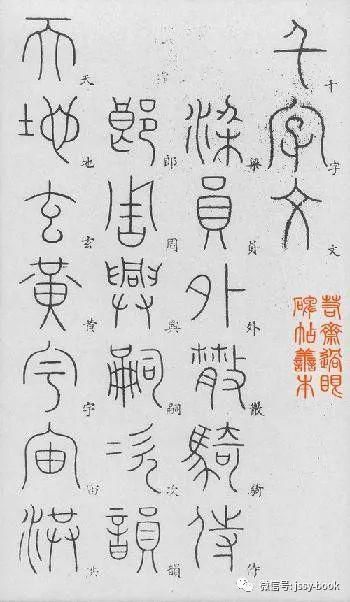 千字文
梁員外散騎侍
郎周興嗣次韻
天地玄黃宇宙洪
齋過眼
碑帖善本
微信号: jssy-book